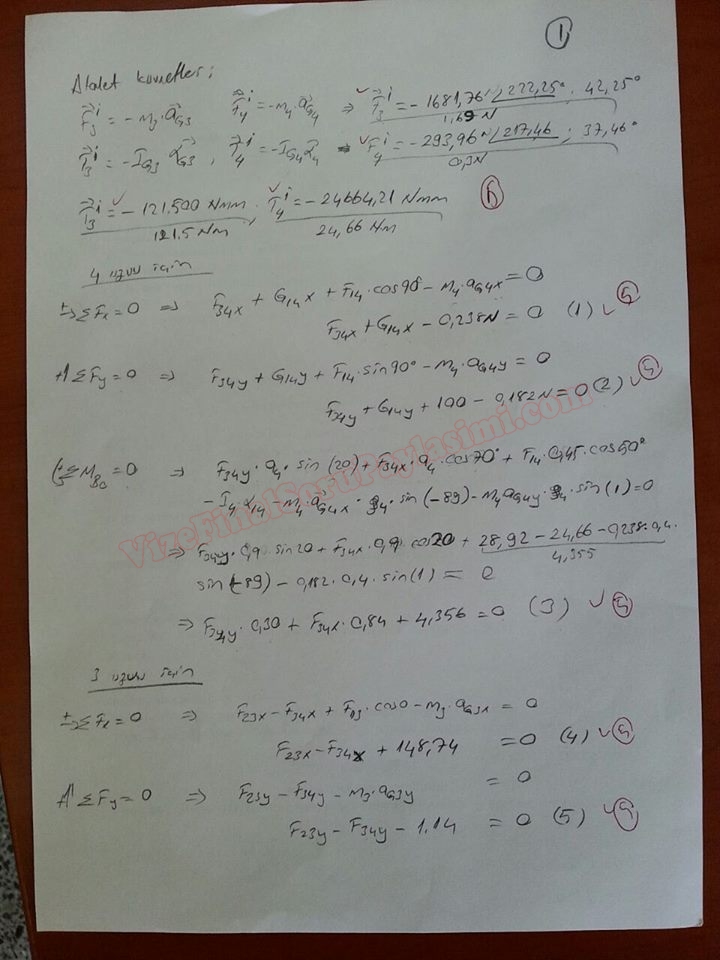 1
Atalet kuvvetleri;
F₃ⁱ = -m₃·a_G3 F₄ⁱ = -m₄·a_G4 ⇒ F₃ⁱ = -1681,76 ∠222,25° ; 42,25°
1,69 N
T₃ⁱ = -I_G3 α_G3 , T₄ⁱ = -I_G4 α₄ ⇒ F₄ⁱ = -293,96 ∠217,46 ; 37,46°
0,3N
T₃ⁱ = -121.500 Nmm, T₄ⁱ = -24664,21 Nmm
121,5 Nm 24,66 Nm
4 uzuv için
→ΣFx=0 ⇒ F34x + G14x + F14·cos90 - m₄·aG4x = 0
F34x + G14x - 0,238N = 0 (1) 5
+↑ΣFy=0 ⇒ F34y + G14y + F14·sin90° - m₄·aG4y = 0
F34y + G14y + 100 - 0,182N = 0 (2) 5
ΣM_B0 = 0 ⇒ F34y·a₄·sin(20) + F34x·a₄·cos70° + F14·0,45·cos50°
- I₄·α₄ - m₄·aG4x·g₄·sin(-89) - m₄aG4y·g₄·sin(1) = 0
⇒ F34y·0,9·sin20 + F34x·0,9·cos20 + 28,92 - 24,66 - 0,238·0,4·
4,355
sin(-89) - 0,182·0,4·sin(1) = 0
⇒ F34y·0,30 + F34x·0,84 + 4,356 = 0 (3) 5
3 uzuv için
→ΣFx=0 ⇒ F23x - F34x + F13·cos0 - m₃·aG3x = 0
F23x - F34x + 148,74 = 0 (4) 5
+↑ΣFy=0 ⇒ F23y - F34y - m₃·aG3y = 0
F23y - F34y - 1,14 = 0 (5) 5
VizeFinalSoruPaylasimi.com